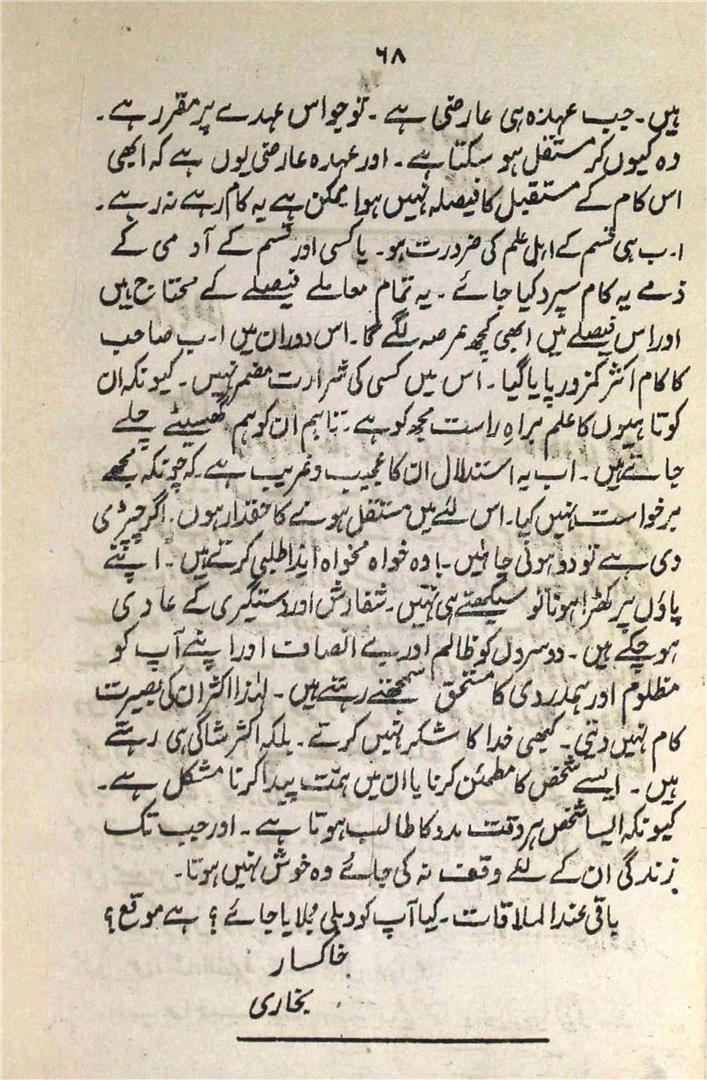 ۶۸
ہیں۔ جب عہدہ ہی عارضی ہے۔ تو جو اس عہدے پر مقرر ہے۔
وہ کیوں کر مستقل ہو سکتا ہے۔ اور عہدہ عارضی یوں ہے کہ ابھی
اس کام کے مستقبل کا فیصلہ نہیں ہوا ممکن ہے یہ کام رہے نہ رہے۔
ا۔ب ہی قسم کے اہل علم کی ضرورت ہو۔ یا کسی اور قسم کے آدمی کے
ذمے یہ کام سپرد کیا جائے۔ یہ تمام معاملے فیصلے کے محتاج ہیں
اور اس فیصلے میں ابھی کچھ عرصہ لگے گا۔ اس دوران میں ا۔ب صاحب
کا کام اکثر کمزور پایا گیا۔ اس میں کسی کی شرارت مضمر نہیں۔ کیونکہ ان
کوتاہیوں کا علم براہِ راست مجھ کو ہے۔ تاہم ان کو ہم گھسیٹے چلے
جاتے ہیں۔ اب یہ استدلال ان کا عجیب و غریب ہے۔ کہ چونکہ مجھے
برخواست نہیں کیا۔ اس لئے میں مستقل ہونے کا حقدار ہوں۔ اگر چپڑی
دی ہے تو دو ہونی چاہئیں۔ وہ خواہ مخواہ ایذا طلبی کرتے ہیں۔ اپنے
پاؤں پر کھڑا ہونا تو سیکھتے ہی نہیں۔ شفارش اور دستگیری کے عادی
ہو چکے ہیں۔ دوسروں کو ظالم اور بے انصاف اور اپنے آپ کو
مظلوم اور ہمدردی کا مستحق سمجھتے رہتے ہیں۔ لہٰذا اکثر ان کی بصیرت
کام نہیں دیتی۔ کبھی خدا کا شکر نہیں کرتے۔ بلکہ اکثر شاکی ہی رہتے
ہیں۔ ایسے شخص کا مطمئن کرنا یا ان میں ہمّت پیدا کرنا مشکل ہے۔
کیونکہ ایسا شخص ہر وقت مدد کا طالب ہوتا ہے۔ اور جب تک
زندگی ان کے لئے وقف نہ کی جائے وہ خوش نہیں ہوتا۔
باقی عند الملاقات۔ کیا آپ کو دہلی بُلایا جائے؟ ہے موقع؟
خاکسار
بخاری